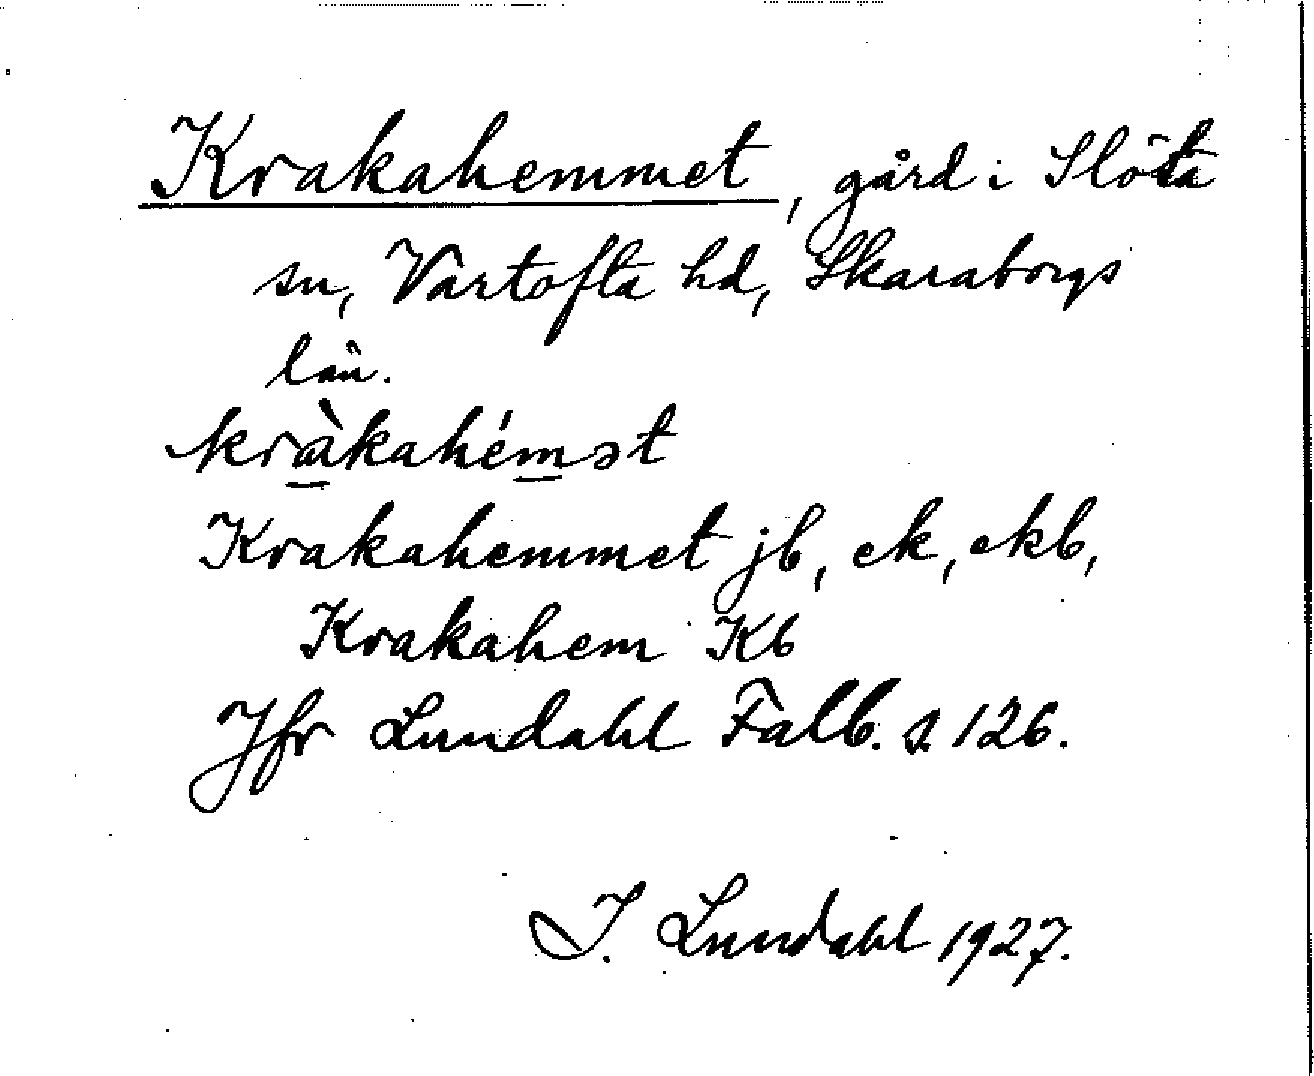 Krakahemmet, gård i Slöta
sn, Vartofta hd, Skaraborgs
län.
kràkahémət
Krakahemmet jb, ek, ekb,
Krakahem Kb
Jfr Lundahl Falb. s. 126.
I. Lundahl 1927.